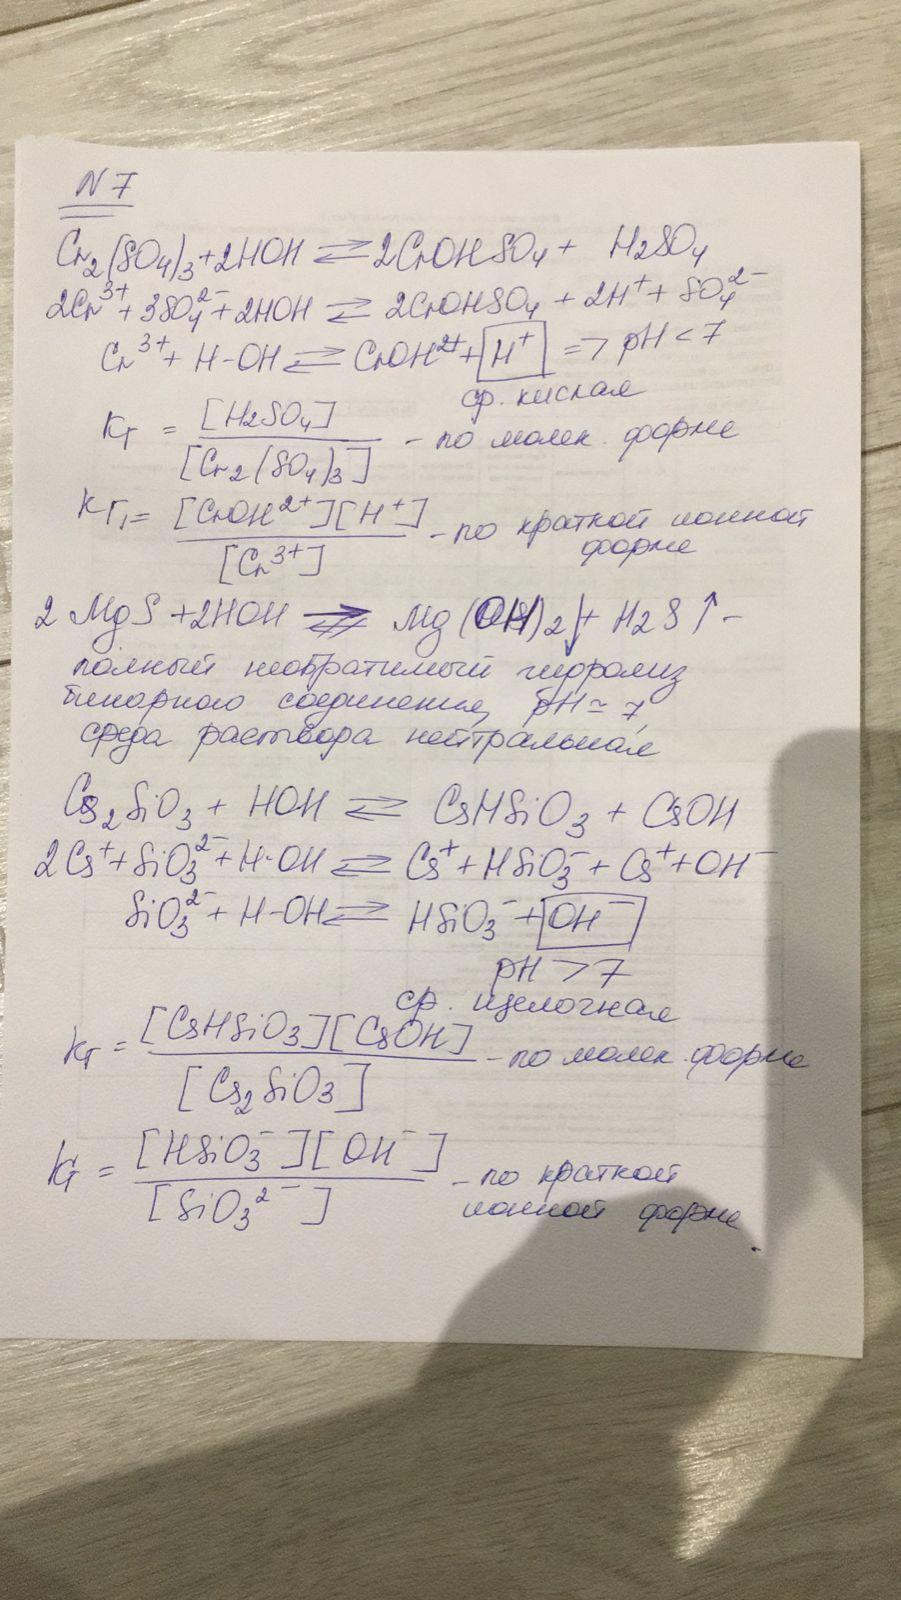 N 7
Cr₂(SO₄)₃ + 2HOH ⇄ 2CrOHSO₄ + H₂SO₄
2Cr³⁺ + 3SO₄²⁻ + 2HOH ⇄ 2CrOHSO₄ + 2H⁺ + SO₄²⁻
Cr³⁺ + H-OH ⇄ CrOH²⁺ + H⁺ => pH < 7
ср. кислая
Kг = [H₂SO₄] / [Cr₂(SO₄)₃] - по молек. форме
Kг₁ = [CrOH²⁺][H⁺] / [Cr³⁺] - по краткой ионной
форме
2 MgS + 2HOH ⇄ Mg(OH)₂↓ + H₂S↑ -
полный необратимый гидролиз
бинарного соединения, pH ≃ 7,
среда раствора нейтральная
Cs₂SiO₃ + HOH ⇄ CsHSiO₃ + CsOH
2Cs⁺ + SiO₃²⁻ + H-OH ⇄ Cs⁺ + HSiO₃⁻ + Cs⁺ + OH⁻
SiO₃²⁻ + H-OH ⇄ HSiO₃⁻ + OH⁻
pH > 7
ср. щелочная
Kг = [CsHSiO₃][CsOH] / [Cs₂SiO₃] - по молек. форме
Kг = [HSiO₃⁻][OH⁻] / [SiO₃²⁻] - по краткой
ионной форме